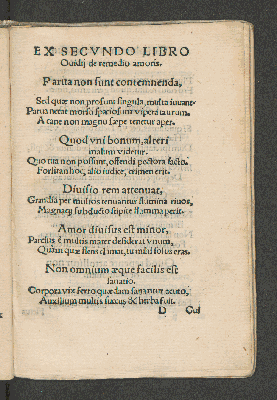 EX SECVNDO LIBRO
Ouidij de remedio amoris.
Parua non sunt contemnenda,
Sed quæ non prosunt singula, multa iuuant.
Parua necat morsu spaciosum vipera taurum.
A cane non magno sæpe tenetur aper.
Quod vni bonum, alteri
malum videtur.
Quo tua non possunt, offendi pectora facto.
Forsitan hoc, alio iudice, crimen erit.
Diuisio rem attenuat,
Grandia per multos tenuantur flumina riuos,
Magnaq; subducto stipite flamma perit.
Amor diuisus est minor,
Parcius è multis mater desiderat vnum,
Quàm quæ flens clamat, tu mihi solus eras.
Non omnium æque facilis est
sanatio.
Corpora vix ferro quædam sanantur acuto,
Auxilium multis succus & herba fuit.
D Cui